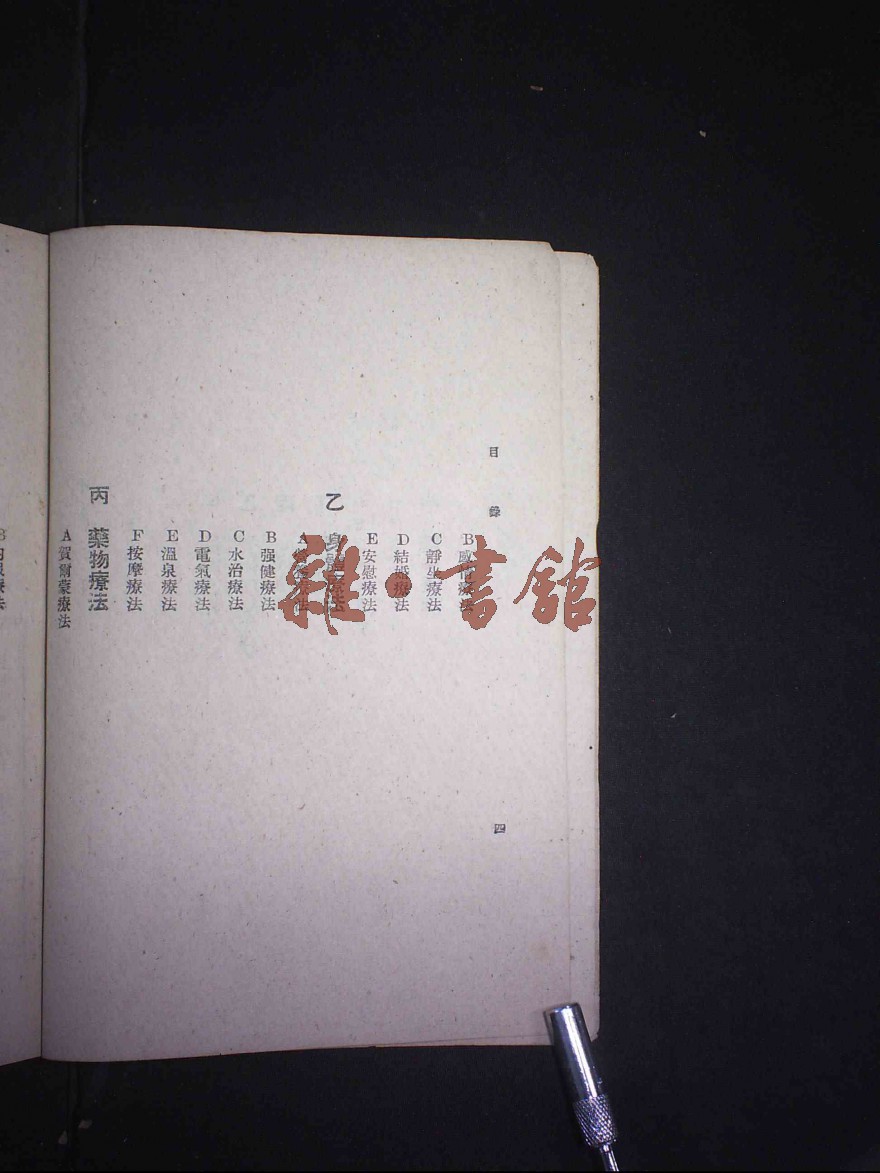 目錄
B 感情療法
C 靜坐療法
D 結婚療法
E 安慰療法
乙 身體療法
A 療法
B 强健療法
C 水治療法
D 電氣療法
E 溫泉療法
F 按摩療法
丙 藥物療法
A 賀爾蒙療法
四
雜·書館